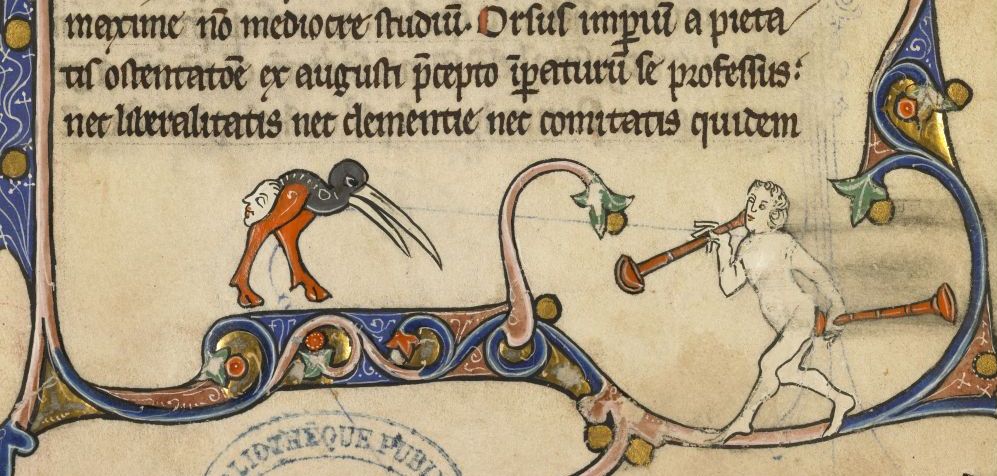 maxime nō mediocre studiū. Orsus imp̲iū a pieta
tis ostentatōe ex augusti p̄cepto īp̲aturū se professus:
nec liberalitatis nec clementie nec comitatis quidem
BLIOTHÈQUE PUBLI